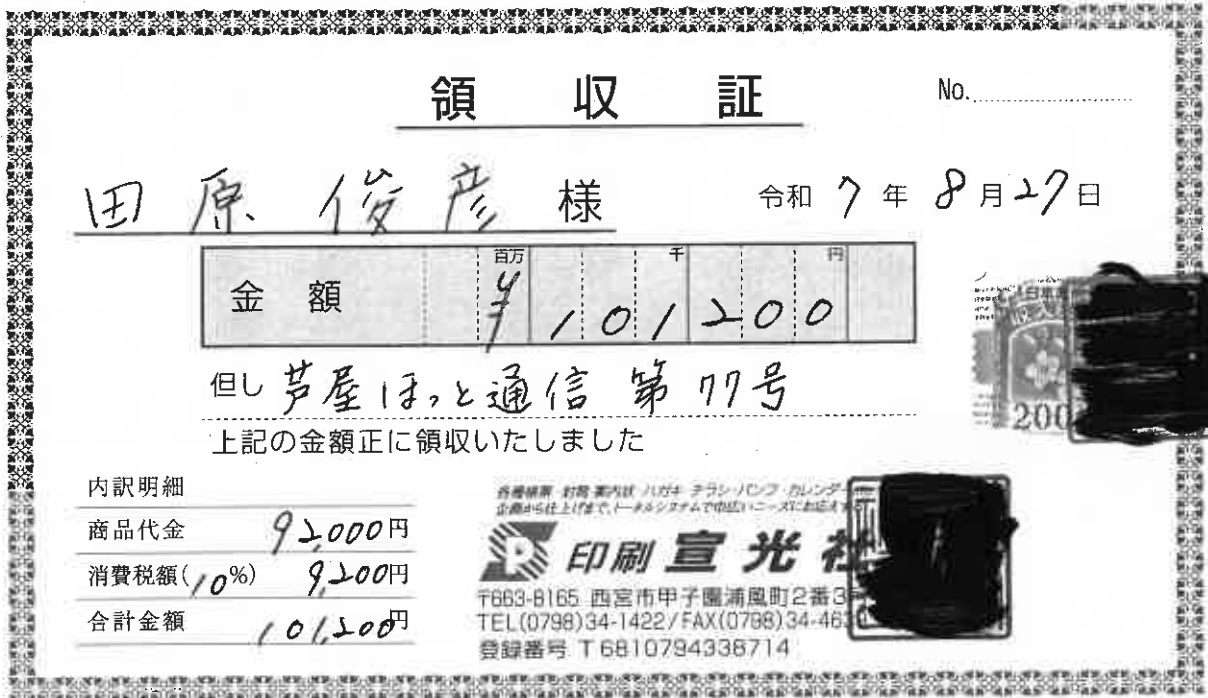 領 収 証
No.
田原俊彦 様
令和 7 年 8 月 27 日
金 額 百万 千 円 ¥101200
但し 芦屋ほっと通信 第77号
上記の金額正に領収いたしました
収入
200
内訳明細
商品代金 92,000円
消費税額(10%) 9,200円
合計金額 101,200円
各種帳票 封筒 案内状 ハガキ チラシ・パンフ カレンダー
企画から仕上げまで、トータルシステムで巾広いニーズにお応え
印刷 宣光社
〒663-8165 西宮市甲子園浦風町2番3
TEL(0798)34-1422/FAX(0798)34-46
登録番号 T6810794338714